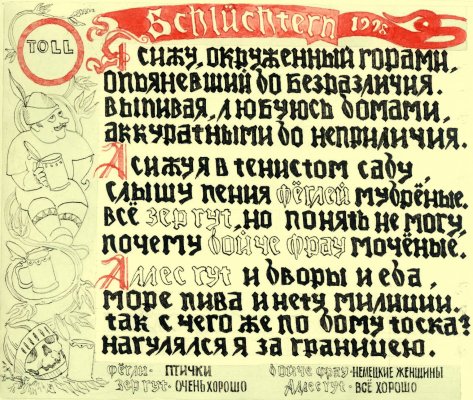 Schlüchtern 1998
TOLL
Я сижу, окруженный горами,
опьяневший до безразличия.
Выпивая, любуюсь домами,
аккуратными до неприличия.
А сижуя в тенистом саду,
слышу пения фёглей мудрёные.
Всё зер гут, но понять не могу,
почему дойче фрау мочёные.
Аллес гут и дворы и еда,
море пива и нету милиции.
Так с чего же по дому тоска?
Нагулялся я за границею.
фёгли - птички
дойче фрау - немецкие женщины
зер гут - очень хорошо
Аллес гут - всё хорошо